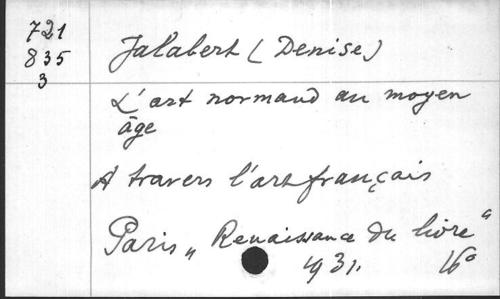 721
835
3
Jalabert (Denise)
L'art normand au moyen
âge
A travers l'art français
Paris „ Renaissance du livre “
1931. 16°